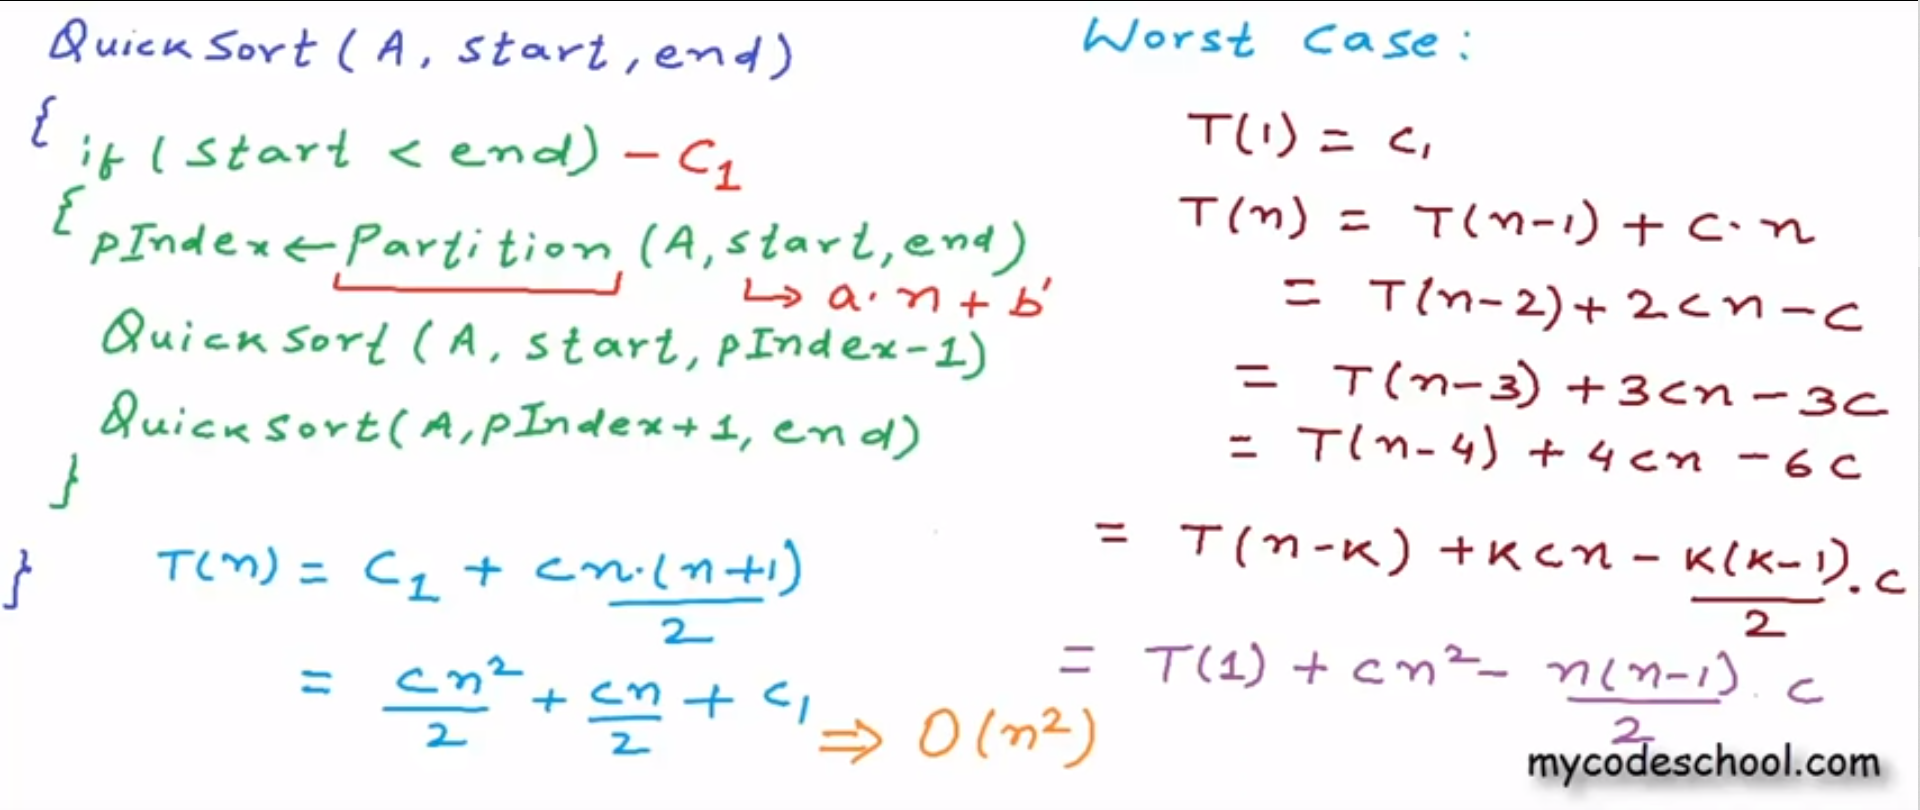 QuickSort(A, start, end)
{
if (start < end) - C₁
{
pIndex ← Partition (A, start, end)
↳ a·n + b'
QuickSort(A, start, pIndex-1)
QuickSort(A, pIndex+1, end)
}
}
T(n) = C₁ + cn·(n+1)/2
= cn²/2 + cn/2 + c₁ ⇒ O(n²)
Worst Case:
T(1) = c₁
T(n) = T(n-1) + c·n
= T(n-2) + 2cn - c
= T(n-3) + 3cn - 3c
= T(n-4) + 4cn - 6c
= T(n-k) + kcn - k(k-1)/2 . c
= T(1) + cn² - n(n-1)/2 . c
mycodeschool.com